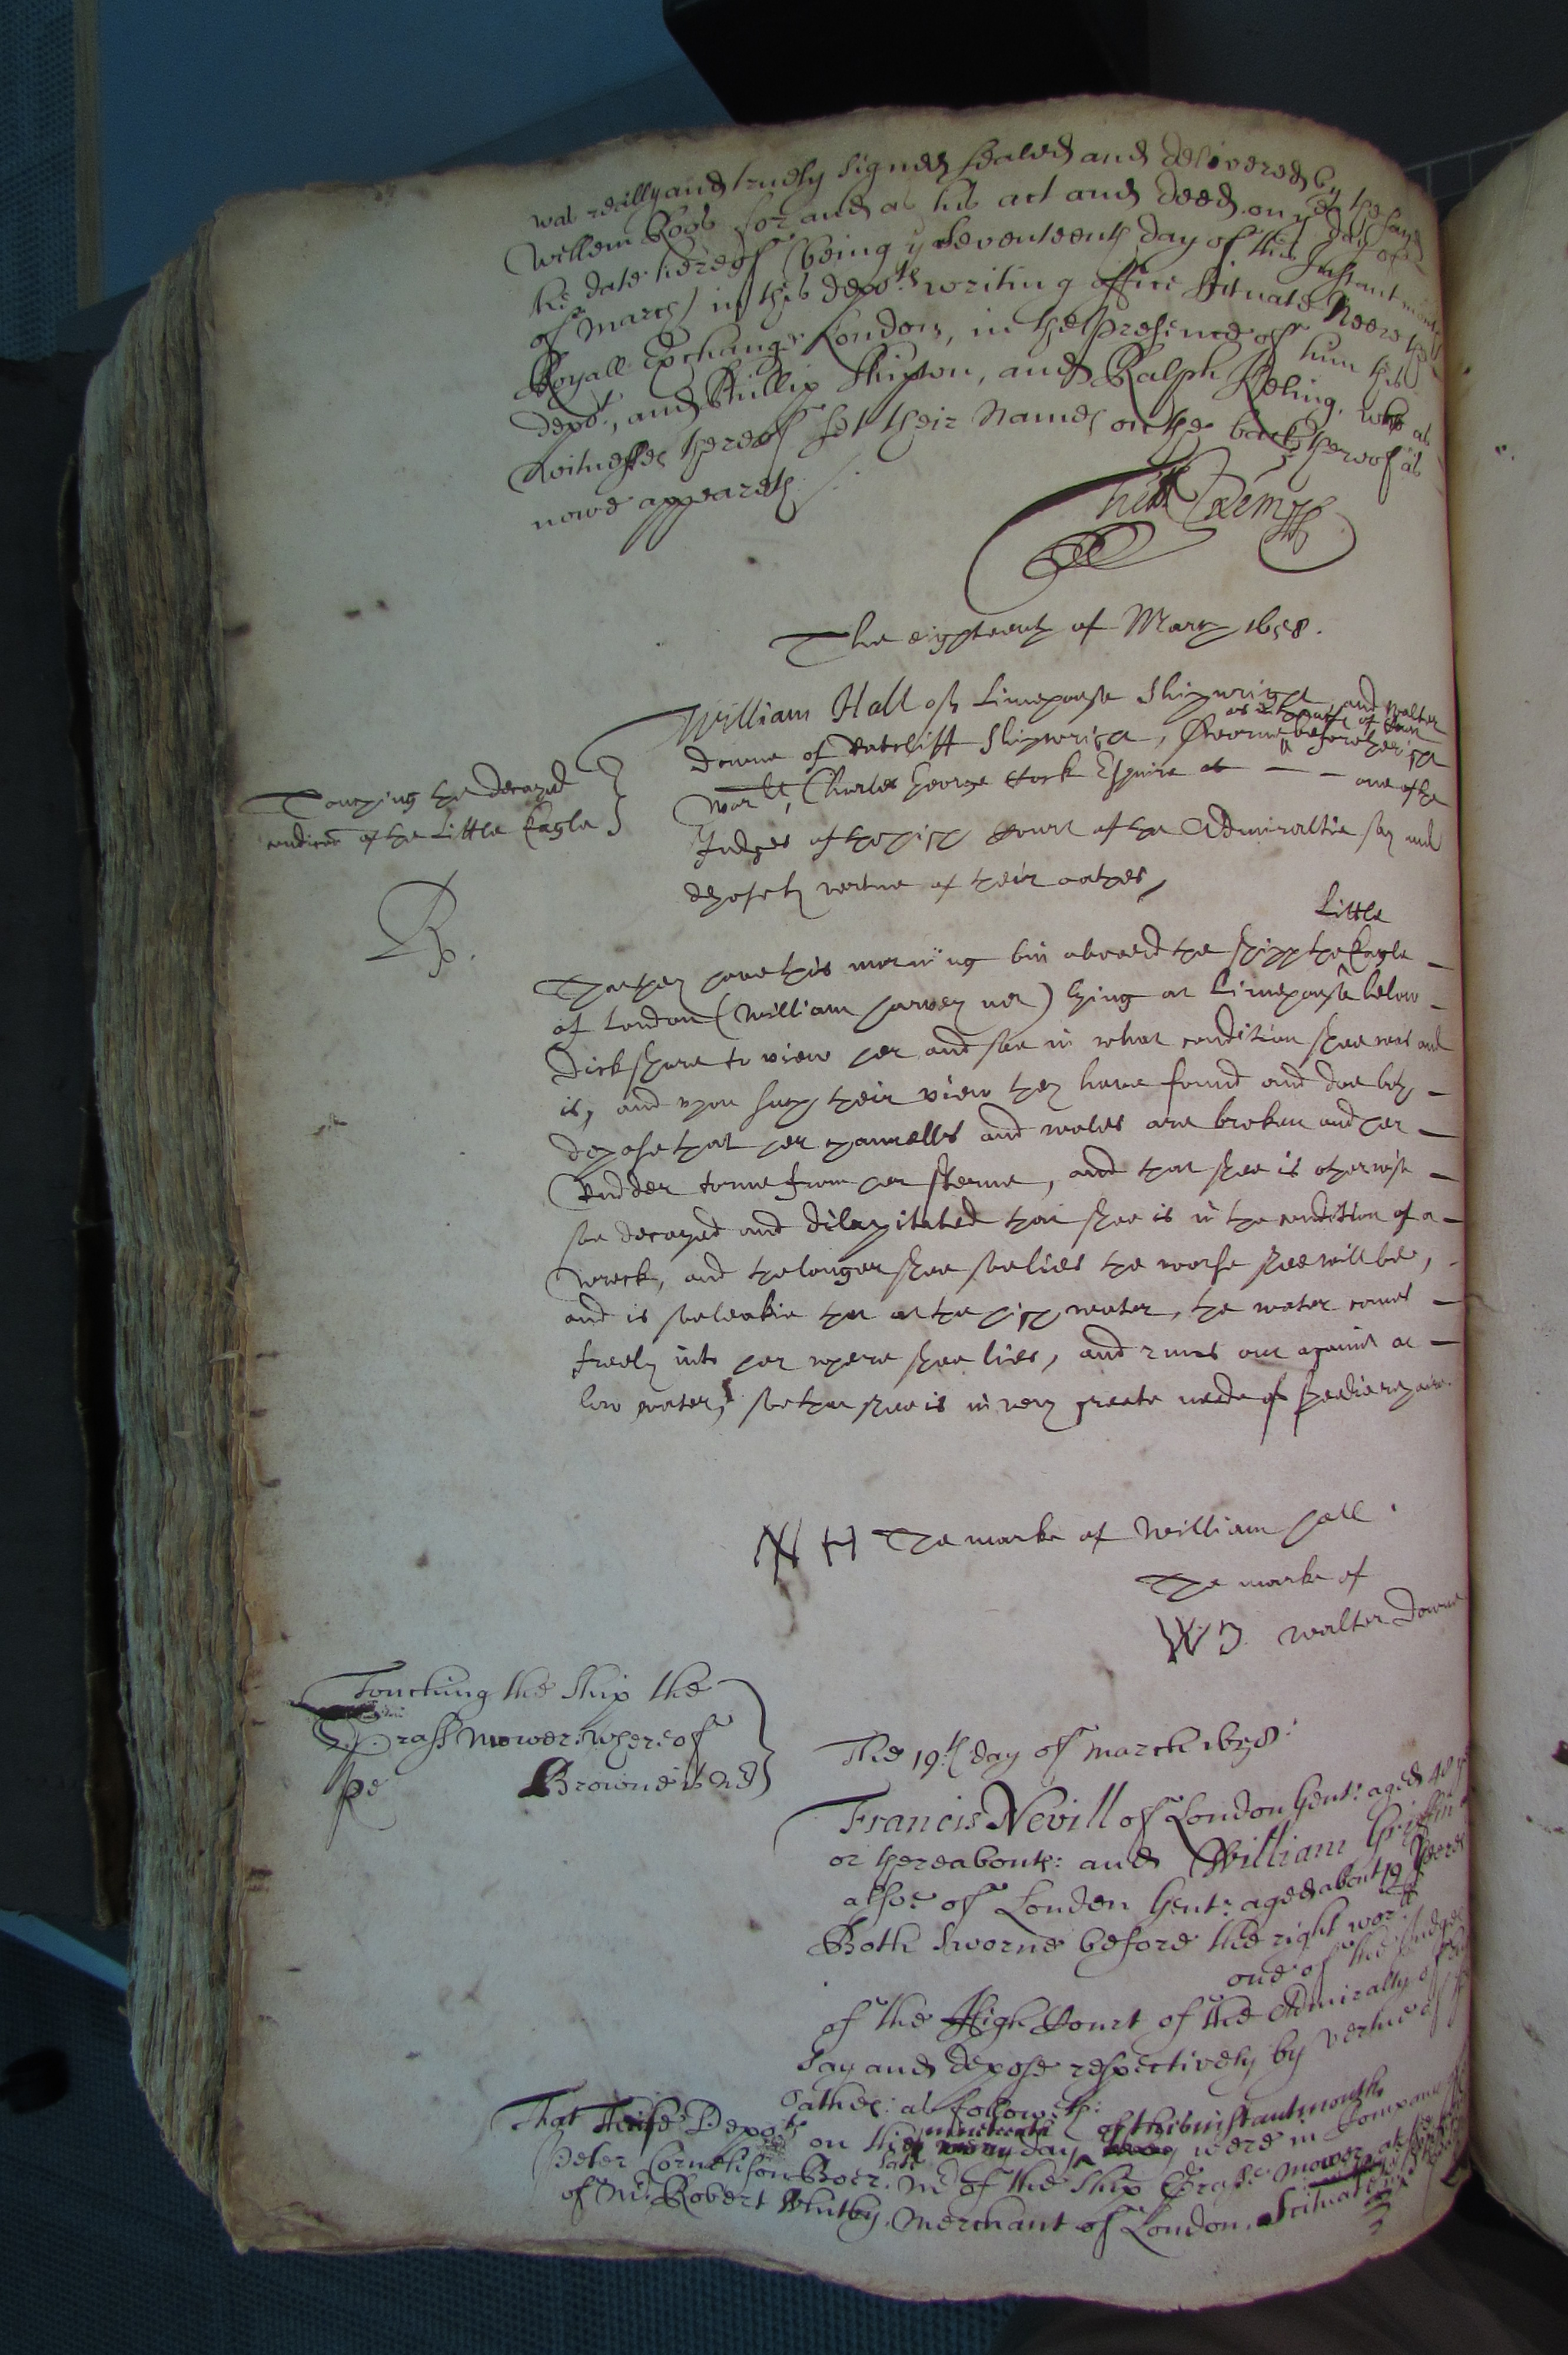 was really and truely signed sealed and delivered by the sayd
Willem Roos for and as his act and deed on ye day of
the date hereof (being ye seventeenth day of this Instant month
of March) in this depots writing office Scituate Neere the
Royall Exchange London, in the presence of him this
depot, and Phillip Shipton, and Ralph Keling, who as
witnesses thereof set their names on the back thereof as
nowe appeareth:
The eighteenth of March 1658.
Touching the decayed
condicon of the Little Eagle
William Hall of Limehouse Shipwright and Walter
Downe of Ratcliff Shipwright, sworne before the right
worll, Charles George Cock Esquire - - one of the
Judges of the high Court of the Admiraltie say and
depose by vertue of their oathes,
Little
That they have this morning bin aboard the shipp the Eagle -
of London (William Harvey mr) lying at Limehouse below -
Dickshore to view her and see in what condition shee was and
is, and upon such their view they have found and doe both -
depose that her channells and wales are broken and her -
Rudder torne from her sterne, and that shee is otherwise -
soe decayed and dilapitated that shee is in the condition of a -
wreck, and the longer shee soe lies the worse shee will be, -
and is soe leakie that at the high water, the water comes -
freely into her where shee lies, and runs out againe at -
low water, soe that shee is in very greate neede of speedie repaire.
W H The marke of William Hall.
The marke of
W D. Walter Downe
Touching the Ship the
Grass Mower: whereof
Browne is Mr
The 19th day of March 1658:
Francis Nevill of London Gent: aged 40
or thereabouts: and William Griffin
alsoe of London Gent: aged about 19 yeeres
Both sworne before the right worll
one of the Judges
of the High Court of the Admiralty of
say and depose respectively by vertue of
oathes: as followeth:
That these Depots on the nineteenth day of this instant month were in Company
Peter Cornelison Boer. late Mr of the Ship Grasse mower, at the
of Mr Robert Whitby, Merchant of London, Scituate